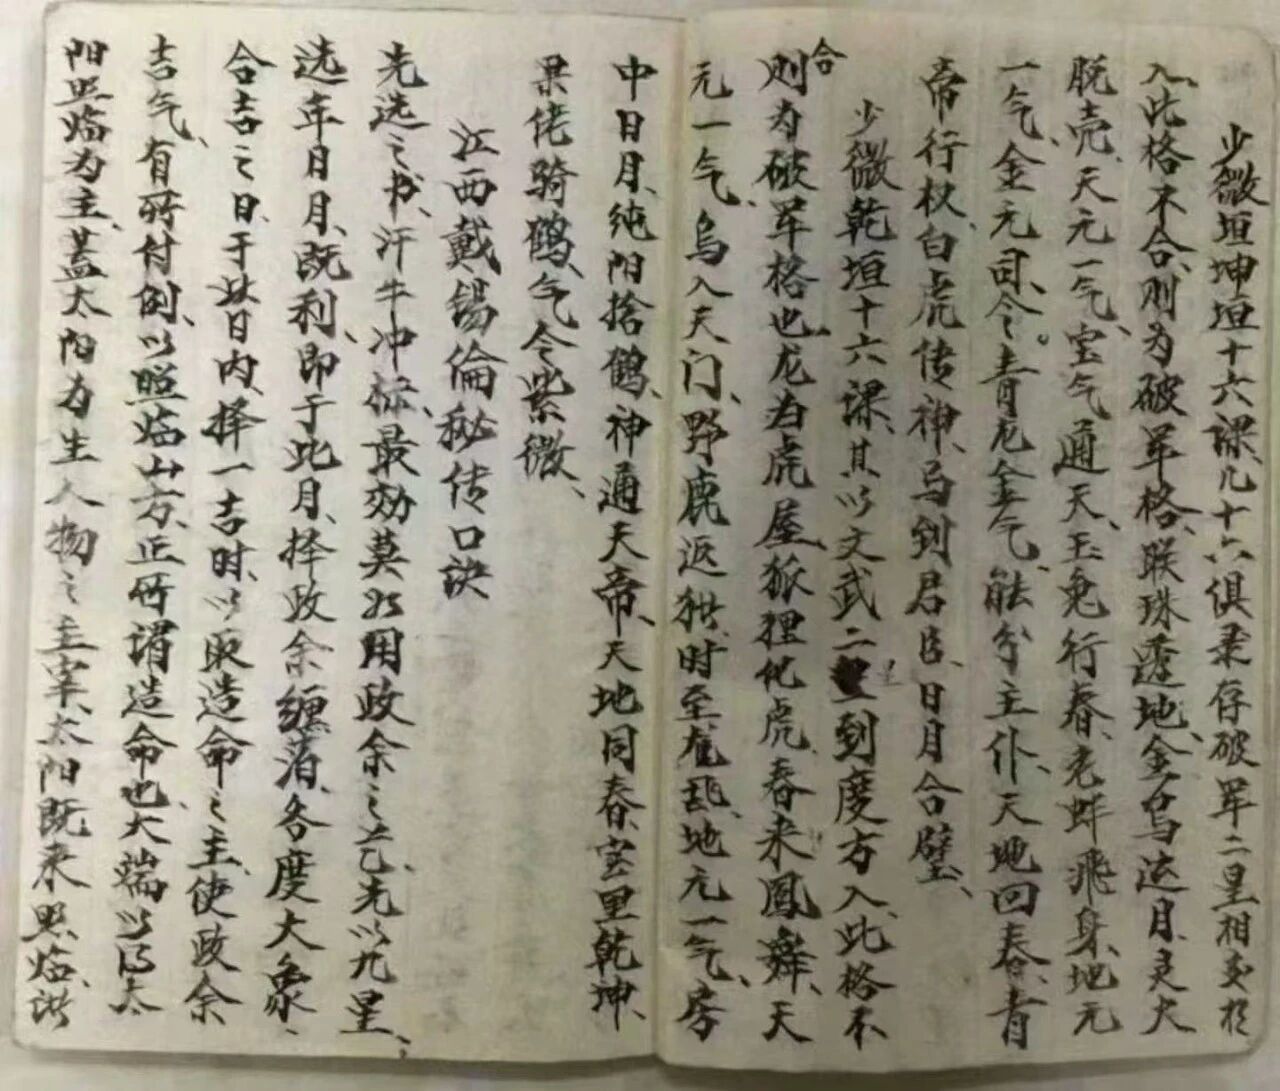 少微垣坤垣十六课、凡十六俱柔存破军二星相交于
入此格不合则为破军格、联珠透地、金乌达月、灵犬
脱壳、天元一气、宝气通天、玉兔行春、老蚌飛身、地元
一气、金元司令。青龙金气、能分主仆、天地回春、青
帝行权、白虎传神、乌到君臣、日月合璧、
少微乾垣十六课、其以文武二星到度方入、此格不
合则为破军格也、龙为虎屋、狐狸化虎、春来鳳舞、天
元一气、乌入天门、野鹿返  时至 乱、地元一气、房
中日月、纯阳捨鹤、神通天帝、天地同春、宝里乾坤、
果佬骑鹤、气令紫微、
江西戴锡倫秘传口诀
先选之书、汗牛冲 、最効莫如用政余之艺、先以九星、
选年日月、既利、即于此月、择政余缠泊、各度大象、
合吉之日、于此日内、择一吉时、以取造命之主、使政余
吉气、有所付倒、以照临山方、正所谓造命也、大端以得太
阳照临为主、蓋太阳为生人物之主宰、太阳既来照临、诸